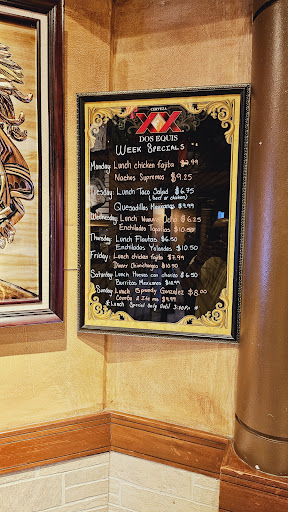 CERVEZA
XX
DOS EQUIS
WEEK SPECIALS
Monday: Lunch chicken fajita $7.99
Nachos Supremos $9.25
Tuesday: Lunch Taco Salad $6.75
(beef or chicken)
Quesadillas $9.99
Wednesday: Lunch $6.25
Enchiladas Tapatias $10.50
Thursday: Lunch Flautas $6.50
Enchiladas $10.50
Friday: Lunch chicken fajita $7.99
Dinner Chimichangas $10.50
Saturday Lunch Huevos con chorizo $6.50
Burritos Mexicanos
Sunday Lunch Speedy Gonzalez $6.00
Combo $9.99
Lunch Special Only Until 3:00Pm